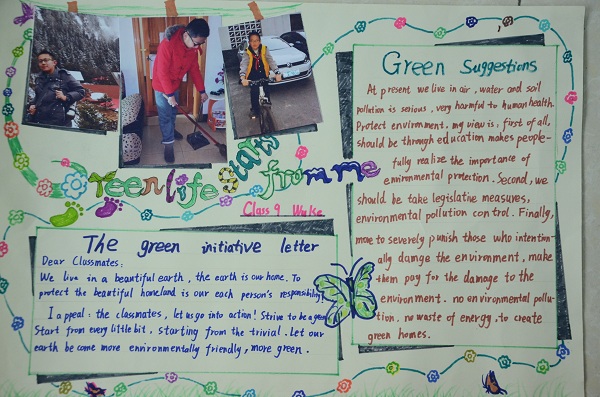 Green life starts from me
Class 9 Wu Ke
The green initiative letter
Dear Classmates:
We live in a beautiful earth, the earth is our home. To
protect the beautiful homeland is our each person's responsibility!
I appeal: the classmates, let us go into action! Strive to be a green
Start from every little bit, starting from the trivial. Let our
earth be come more environmentally friendly, more green.
Green Suggestions
At present we live in air, water and soil
pollution is serious, very harmful to human health.
Protect environment. my view is: first of all,
should be through education makes people-
fully realize the importance of
environmental protection. Second, we
should be take legislative measures,
environmental pollution control. Finally,
more to severely punish those who intention-
ally damge the environment, make
them pay for the damage to the
environment. no environmental pollu-
tion. no waste of energy. to create
green homes.